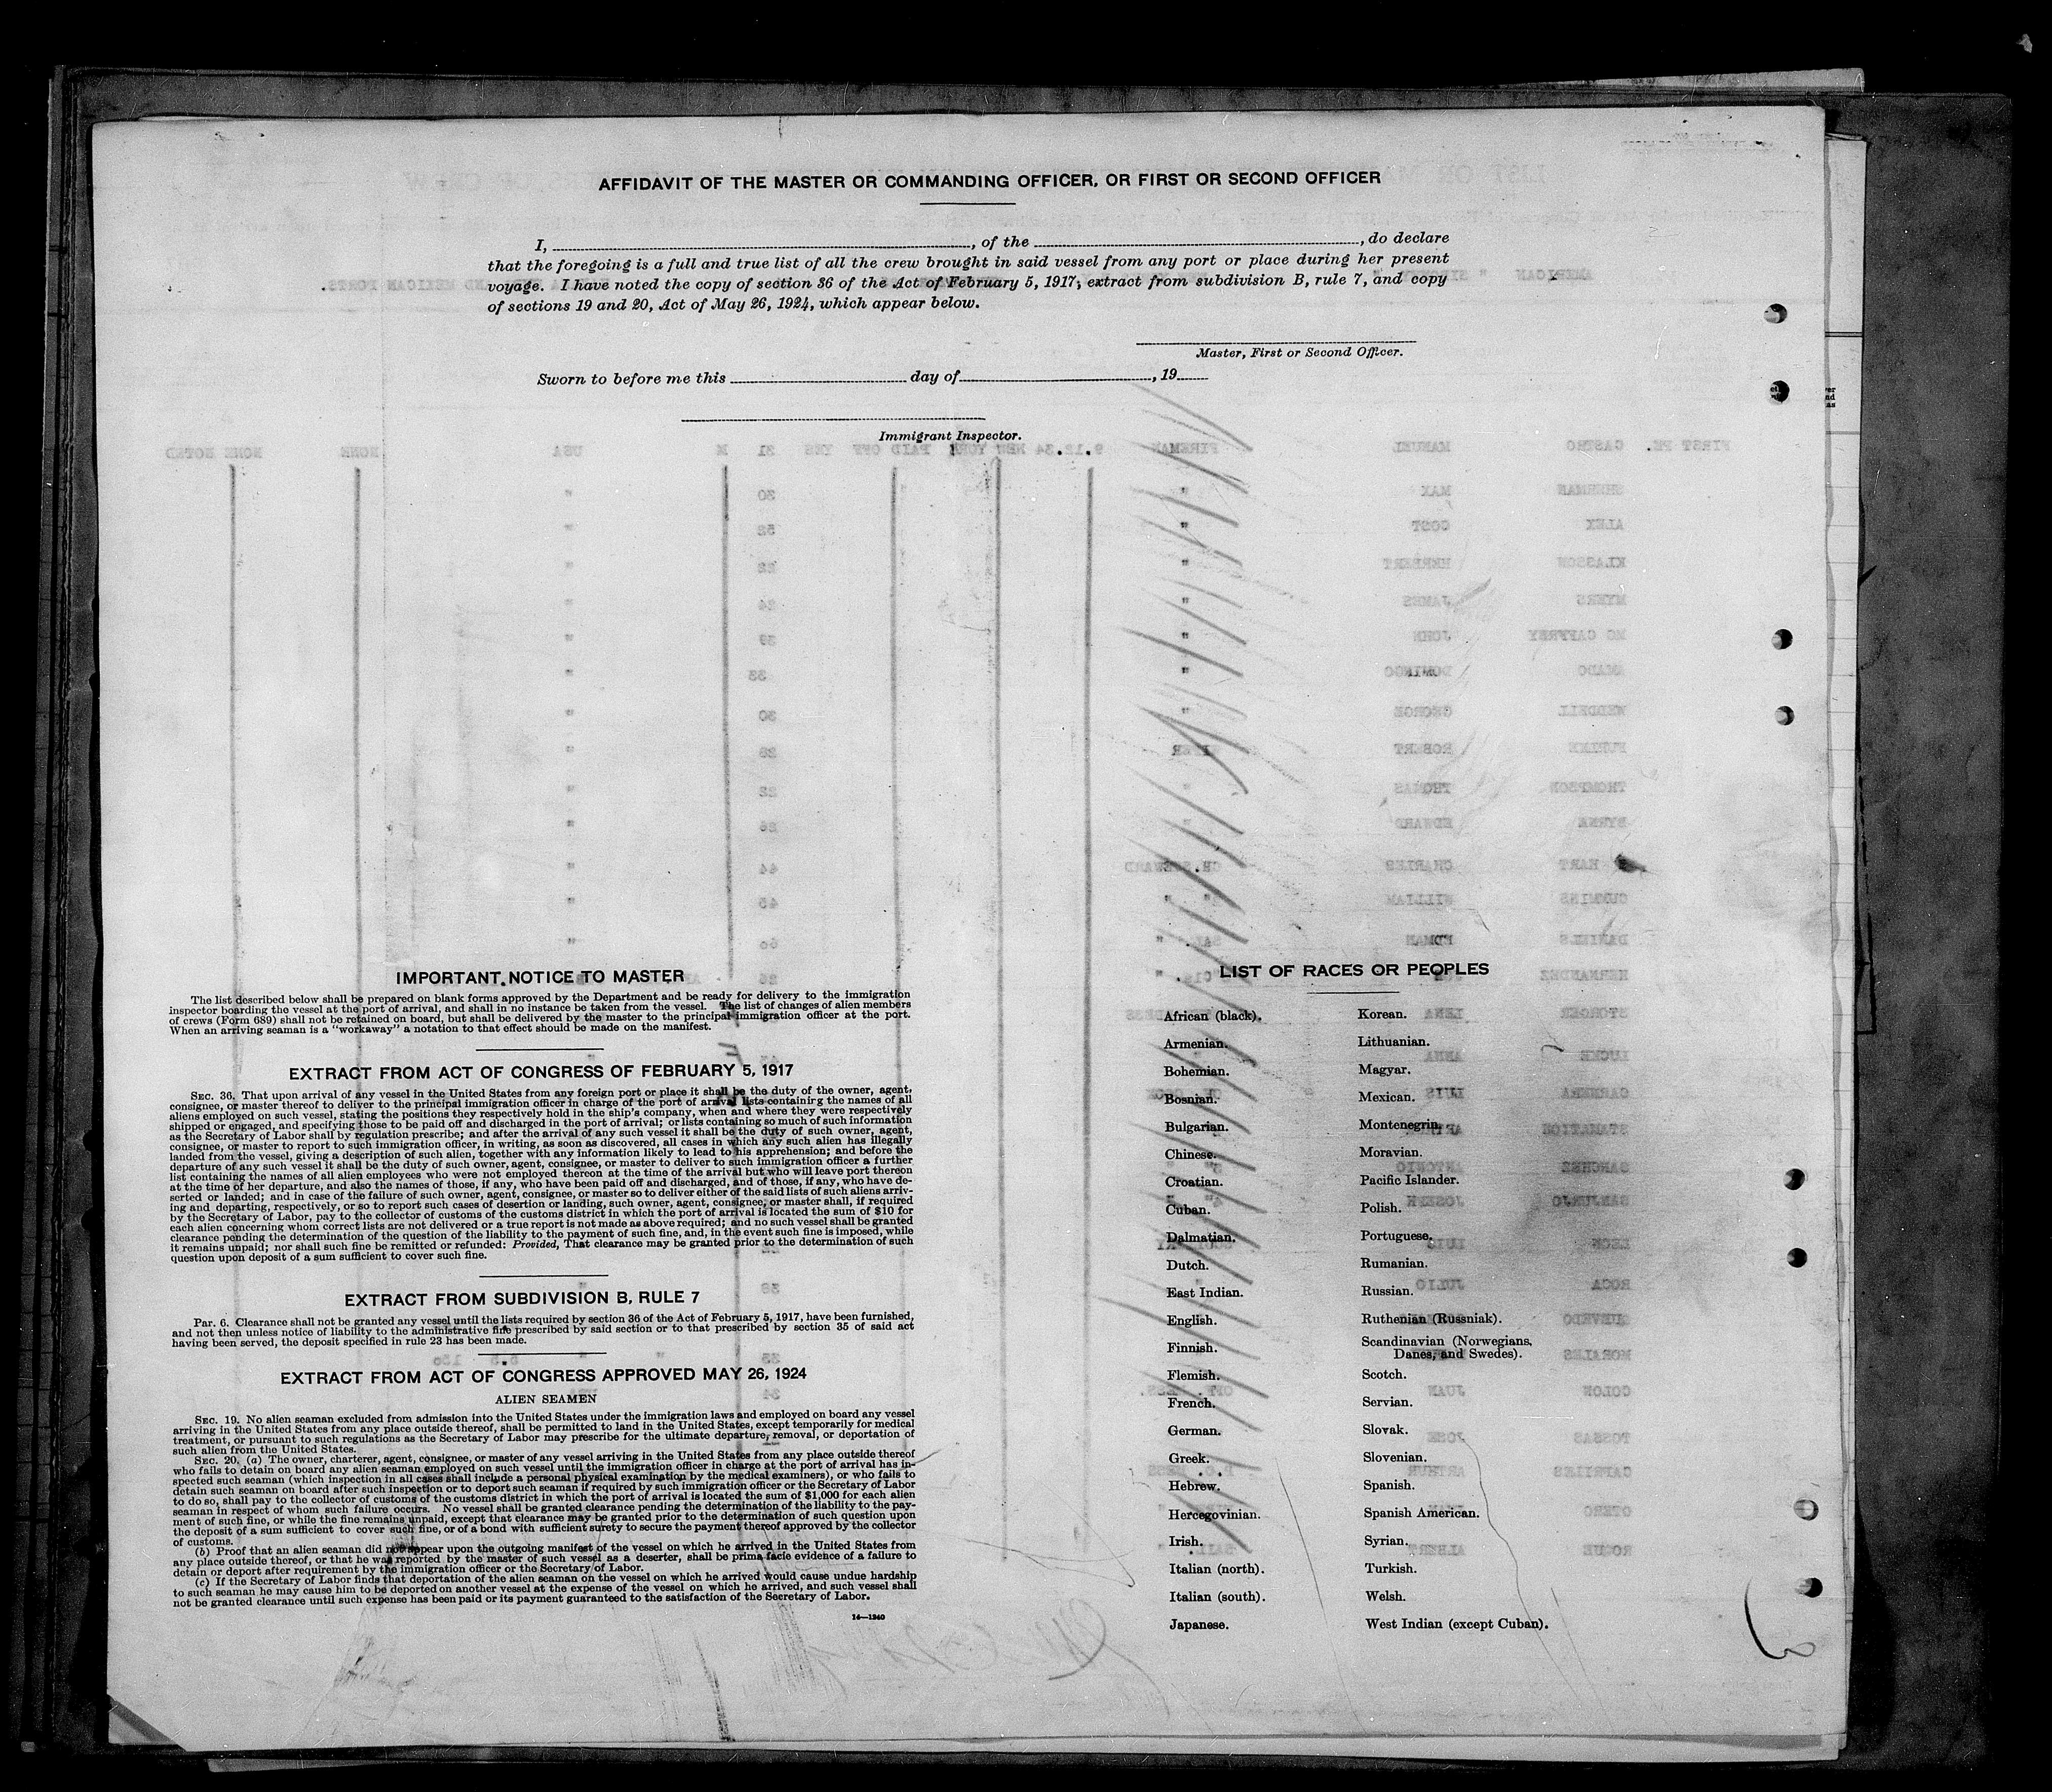 AFFIDAVIT OF THE MASTER OR COMMANDING OFFICER, OR FIRST OR SECOND OFFICER
I, , of the , do declare
that the foregoing is a full and true list of all the crew brought in said vessel from any port or place during her present
voyage. I have noted the copy of section 36 of the Act of February 5, 1917, extract from subdivision B, rule 7, and copy
of sections 19 and 20, Act of May 26, 1924, which appear below.
Master, First or Second Officer.
Sworn to before me this day of , 19
Immigrant Inspector.
IMPORTANT NOTICE TO MASTER
The list described below shall be prepared on blank forms approved by the Department and be ready for delivery to the immigration
inspector boarding the vessel at the port of arrival, and shall in no instance be taken from the vessel. The list of changes of alien members
of crews (Form 689) shall not be retained on board, but shall be delivered by the master to the principal immigration officer at the port.
When an arriving seaman is a "workaway" a notation to that effect should be made on the manifest.
EXTRACT FROM ACT OF CONGRESS OF FEBRUARY 5, 1917
SEC. 36. That upon arrival of any vessel in the United States from any foreign port or place it shall be the duty of the owner, agent,
consignee, or master thereof to deliver to the principal immigration officer in charge of the port of arrival lists containing the names of all
aliens employed on such vessel, stating the positions they respectively hold in the ship's company, when and where they were respectively
shipped or engaged, and specifying those to be paid off and discharged in the port of arrival; or lists containing so much of such information
as the Secretary of Labor shall by regulation prescribe; and after the arrival of any such vessel it shall be the duty of such owner, agent,
consignee, or master to report to such immigration officer, in writing, as soon as discovered, all cases in which any such alien has illegally
landed from the vessel, giving a description of such alien, together with any information likely to lead to his apprehension; and before the
departure of any such vessel it shall be the duty of such owner, agent, consignee, or master to deliver to such immigration officer a further
list containing the names of all alien employees who were not employed thereon at the time of the arrival but who will leave port thereon
at the time of her departure, and also the names of those, if any, who have been paid off and discharged, and of those, if any, who have de-
serted or landed; and in case of the failure of such owner, agent, consignee, or master so to deliver either of the said lists of such aliens arriv-
ing and departing, respectively, or so to report such cases of desertion or landing, such owner, agent, consignee, or master shall, if required
by the Secretary of Labor, pay to the collector of customs of the customs district in which the port of arrival is located the sum of $10 for
each alien concerning whom correct lists are not delivered or a true report is not made as above required; and no such vessel shall be granted
clearance pending the determination of the question of the liability to the payment of such fine, and, in the event such fine is imposed, while
it remains unpaid; nor shall such fine be remitted or refunded: Provided, That clearance may be granted prior to the determination of such
question upon deposit of a sum sufficient to cover such fine.
EXTRACT FROM SUBDIVISION B, RULE 7
PAR. 6. Clearance shall not be granted any vessel until the lists required by section 36 of the Act of February 5, 1917, have been furnished,
and not then unless notice of liability to the administrative fine prescribed by said section or to that prescribed by section 35 of said act
having been served, the deposit specified in rule 23 has been made.
EXTRACT FROM ACT OF CONGRESS APPROVED MAY 26, 1924
ALIEN SEAMEN
SEC. 19. No alien seaman excluded from admission into the United States under the immigration laws and employed on board any vessel
arriving in the United States from any place outside thereof, shall be permitted to land in the United States, except temporarily for medical
treatment, or pursuant to such regulations as the Secretary of Labor may prescribe for the ultimate departure, removal, or deportation of
such alien from the United States.
SEC. 20. (a) The owner, charterer, agent, consignee, or master of any vessel arriving in the United States from any place outside thereof
who fails to detain on board any alien seaman employed on such vessel until the immigration officer in charge at the port of arrival has in-
spected such seaman (which inspection in all cases shall include a personal physical examination by the medical examiners), or who fails to
detain such seaman on board after such inspection or to deport such seaman if required by such immigration officer or the Secretary of Labor
to do so, shall pay to the collector of customs of the customs district in which the port of arrival is located the sum of $1,000 for each alien
seaman in respect of whom such failure occurs. No vessel shall be granted clearance pending the determination of the liability to the pay-
ment of such fine, or while the fine remains unpaid, except that clearance may be granted prior to the determination of such question upon
the deposit of a sum sufficient to cover such fine, or of a bond with sufficient surety to secure the payment thereof approved by the collector
of customs.
(b) Proof that an alien seaman did not appear upon the outgoing manifest of the vessel on which he arrived in the United States from
any place outside thereof, or that he was reported by the master of such vessel as a deserter, shall be prima facie evidence of a failure to
detain or deport after requirement by the immigration officer or the Secretary of Labor.
(c) If the Secretary of Labor finds that deportation of the alien seaman on the vessel on which he arrived would cause undue hardship
to such seaman he may cause him to be deported on another vessel at the expense of the vessel on which he arrived, and such vessel shall
not be granted clearance until such expense has been paid or its payment guaranteed to the satisfaction of the Secretary of Labor.
14—1240
LIST OF RACES OR PEOPLES
African (black).
Armenian.
Bohemian.
Bosnian.
Bulgarian.
Chinese.
Croatian.
Cuban.
Dalmatian.
Dutch.
East Indian.
English.
Finnish.
Flemish.
French.
German.
Greek.
Hebrew.
Hercegovinian.
Irish.
Italian (north).
Italian (south).
Japanese.
Korean.
Lithuanian.
Magyar.
Mexican.
Montenegrin.
Moravian.
Pacific Islander.
Polish.
Portuguese.
Rumanian.
Russian.
Ruthenian (Russniak).
Scandinavian (Norwegians,
Danes, and Swedes).
Scotch.
Servian.
Slovak.
Slovenian.
Spanish.
Spanish American.
Syrian.
Turkish.
Welsh.
West Indian (except Cuban).
3